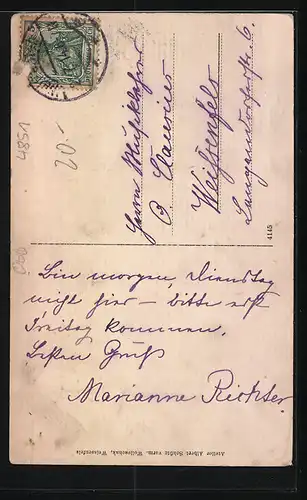 Herrn Musiklehrer
O. Claurius
Weißenfels
Langendorferstr. 6.
4145
Bin morgen, Dienstag
nicht hier – bitte erst
Freitag kommen.
Besten Gruß
Marianne Richter.
Atelier Albert Schütze vorm. Wollschak, Weissenfels
4851
20.-